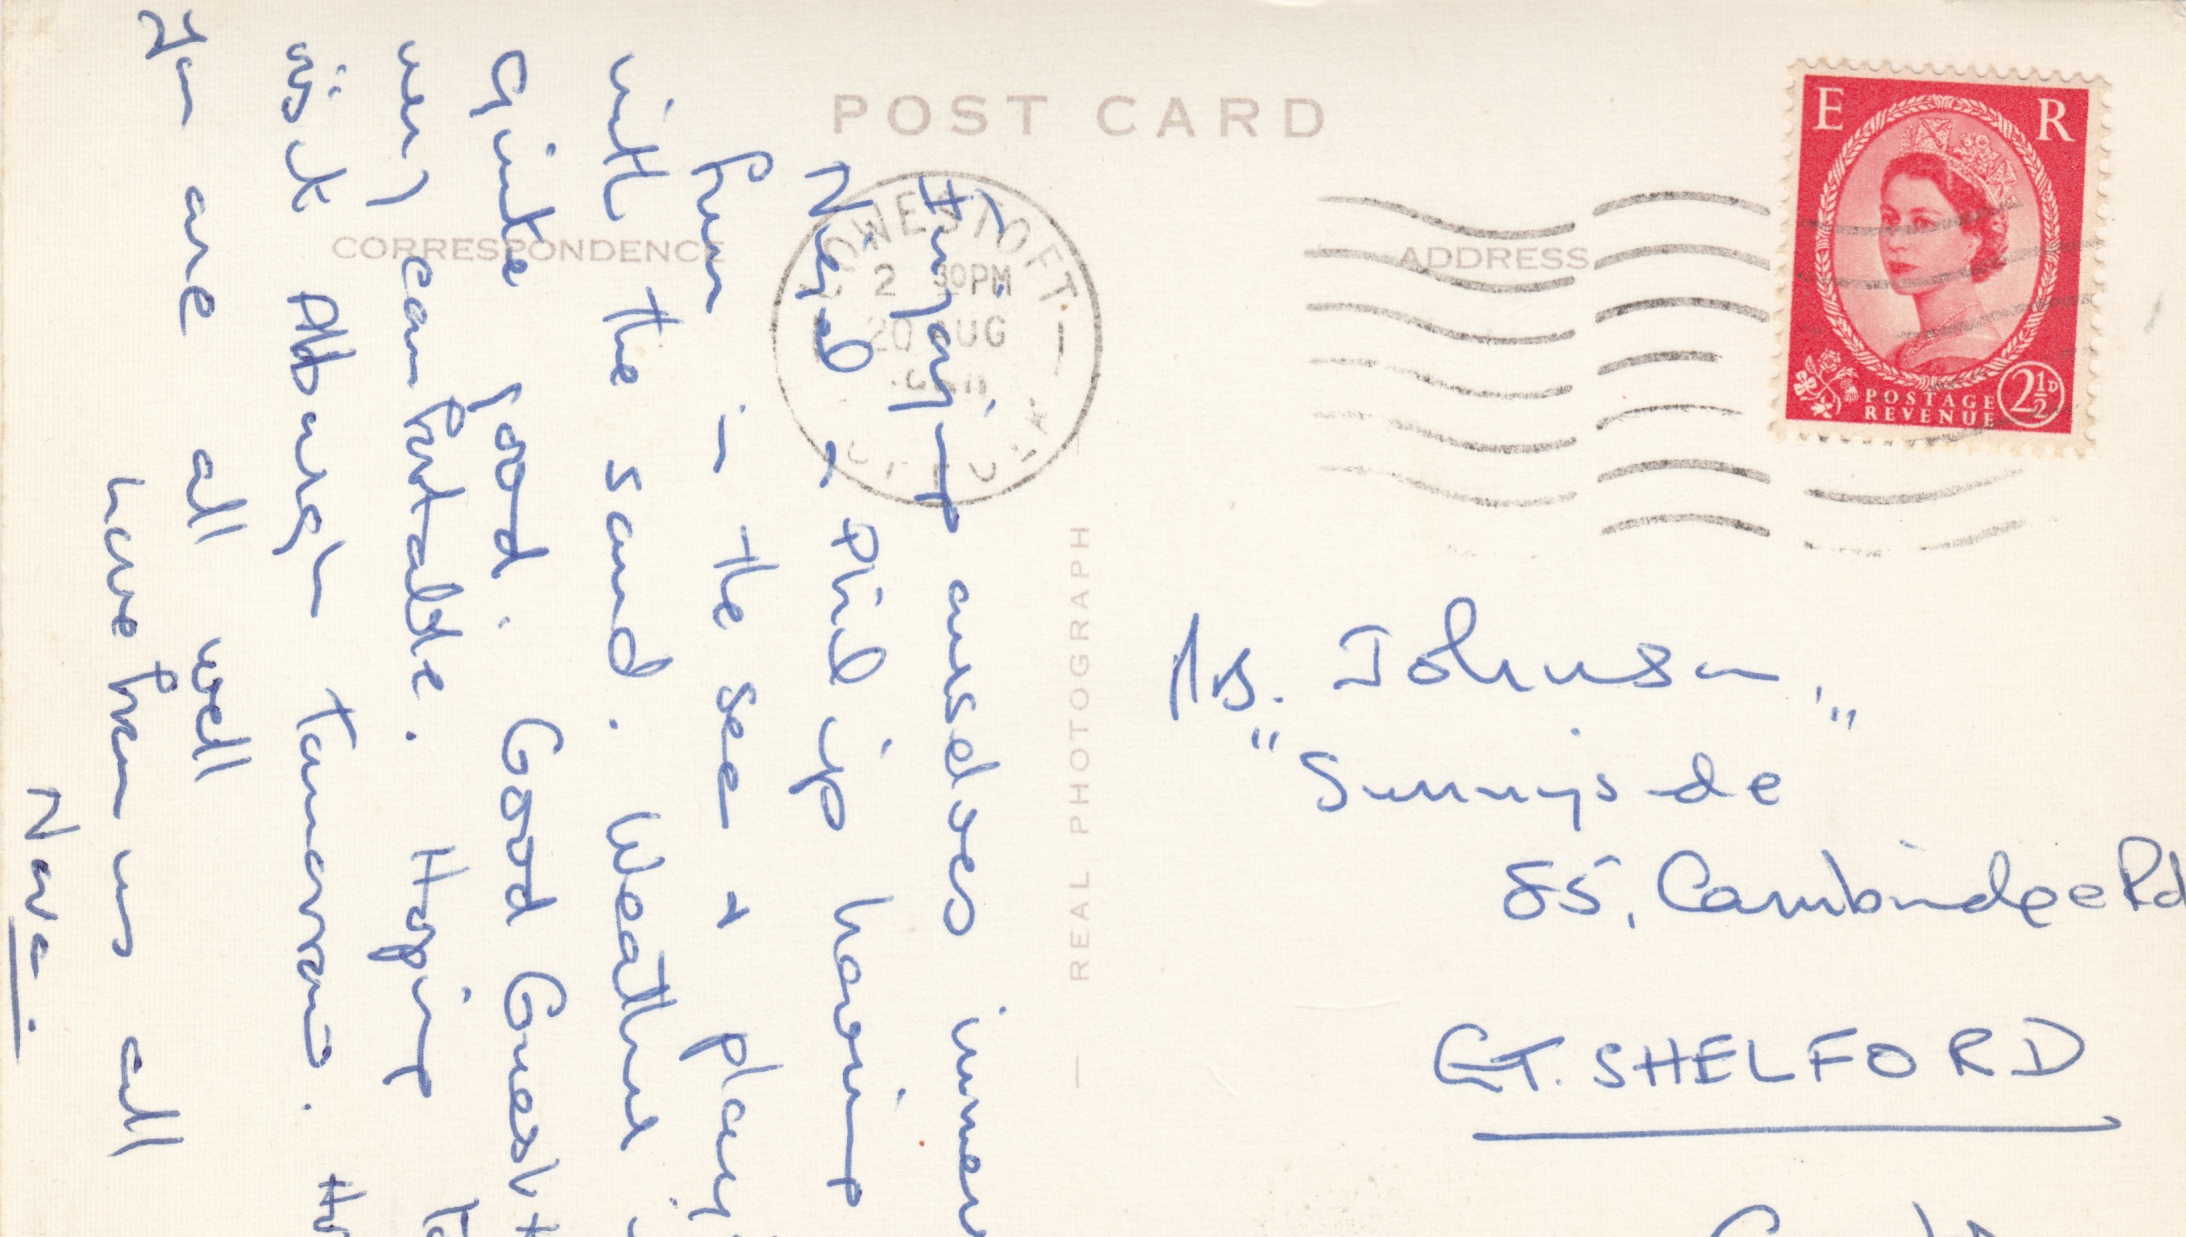 POST CARD
CORRESPONDENCE
ADDRESS
REAL PHOTOGRAPH
LOWESTOFT
2 30PM
20 AUG
SUFFOLK
E R
POSTAGE
REVENUE
2½D
Enjoying ourselves immen
Nigel & Philip having
fun in the sea & play
with the sand. Weather
quite good. Good Guest H
very comfortable. Hoping to
visit Alburgh Tomorrow. Ho
you are all well
love from us all
Nora.
Mrs. Johnson,
"Sunnyside"
85, Cambridge Rd
GT. SHELFORD